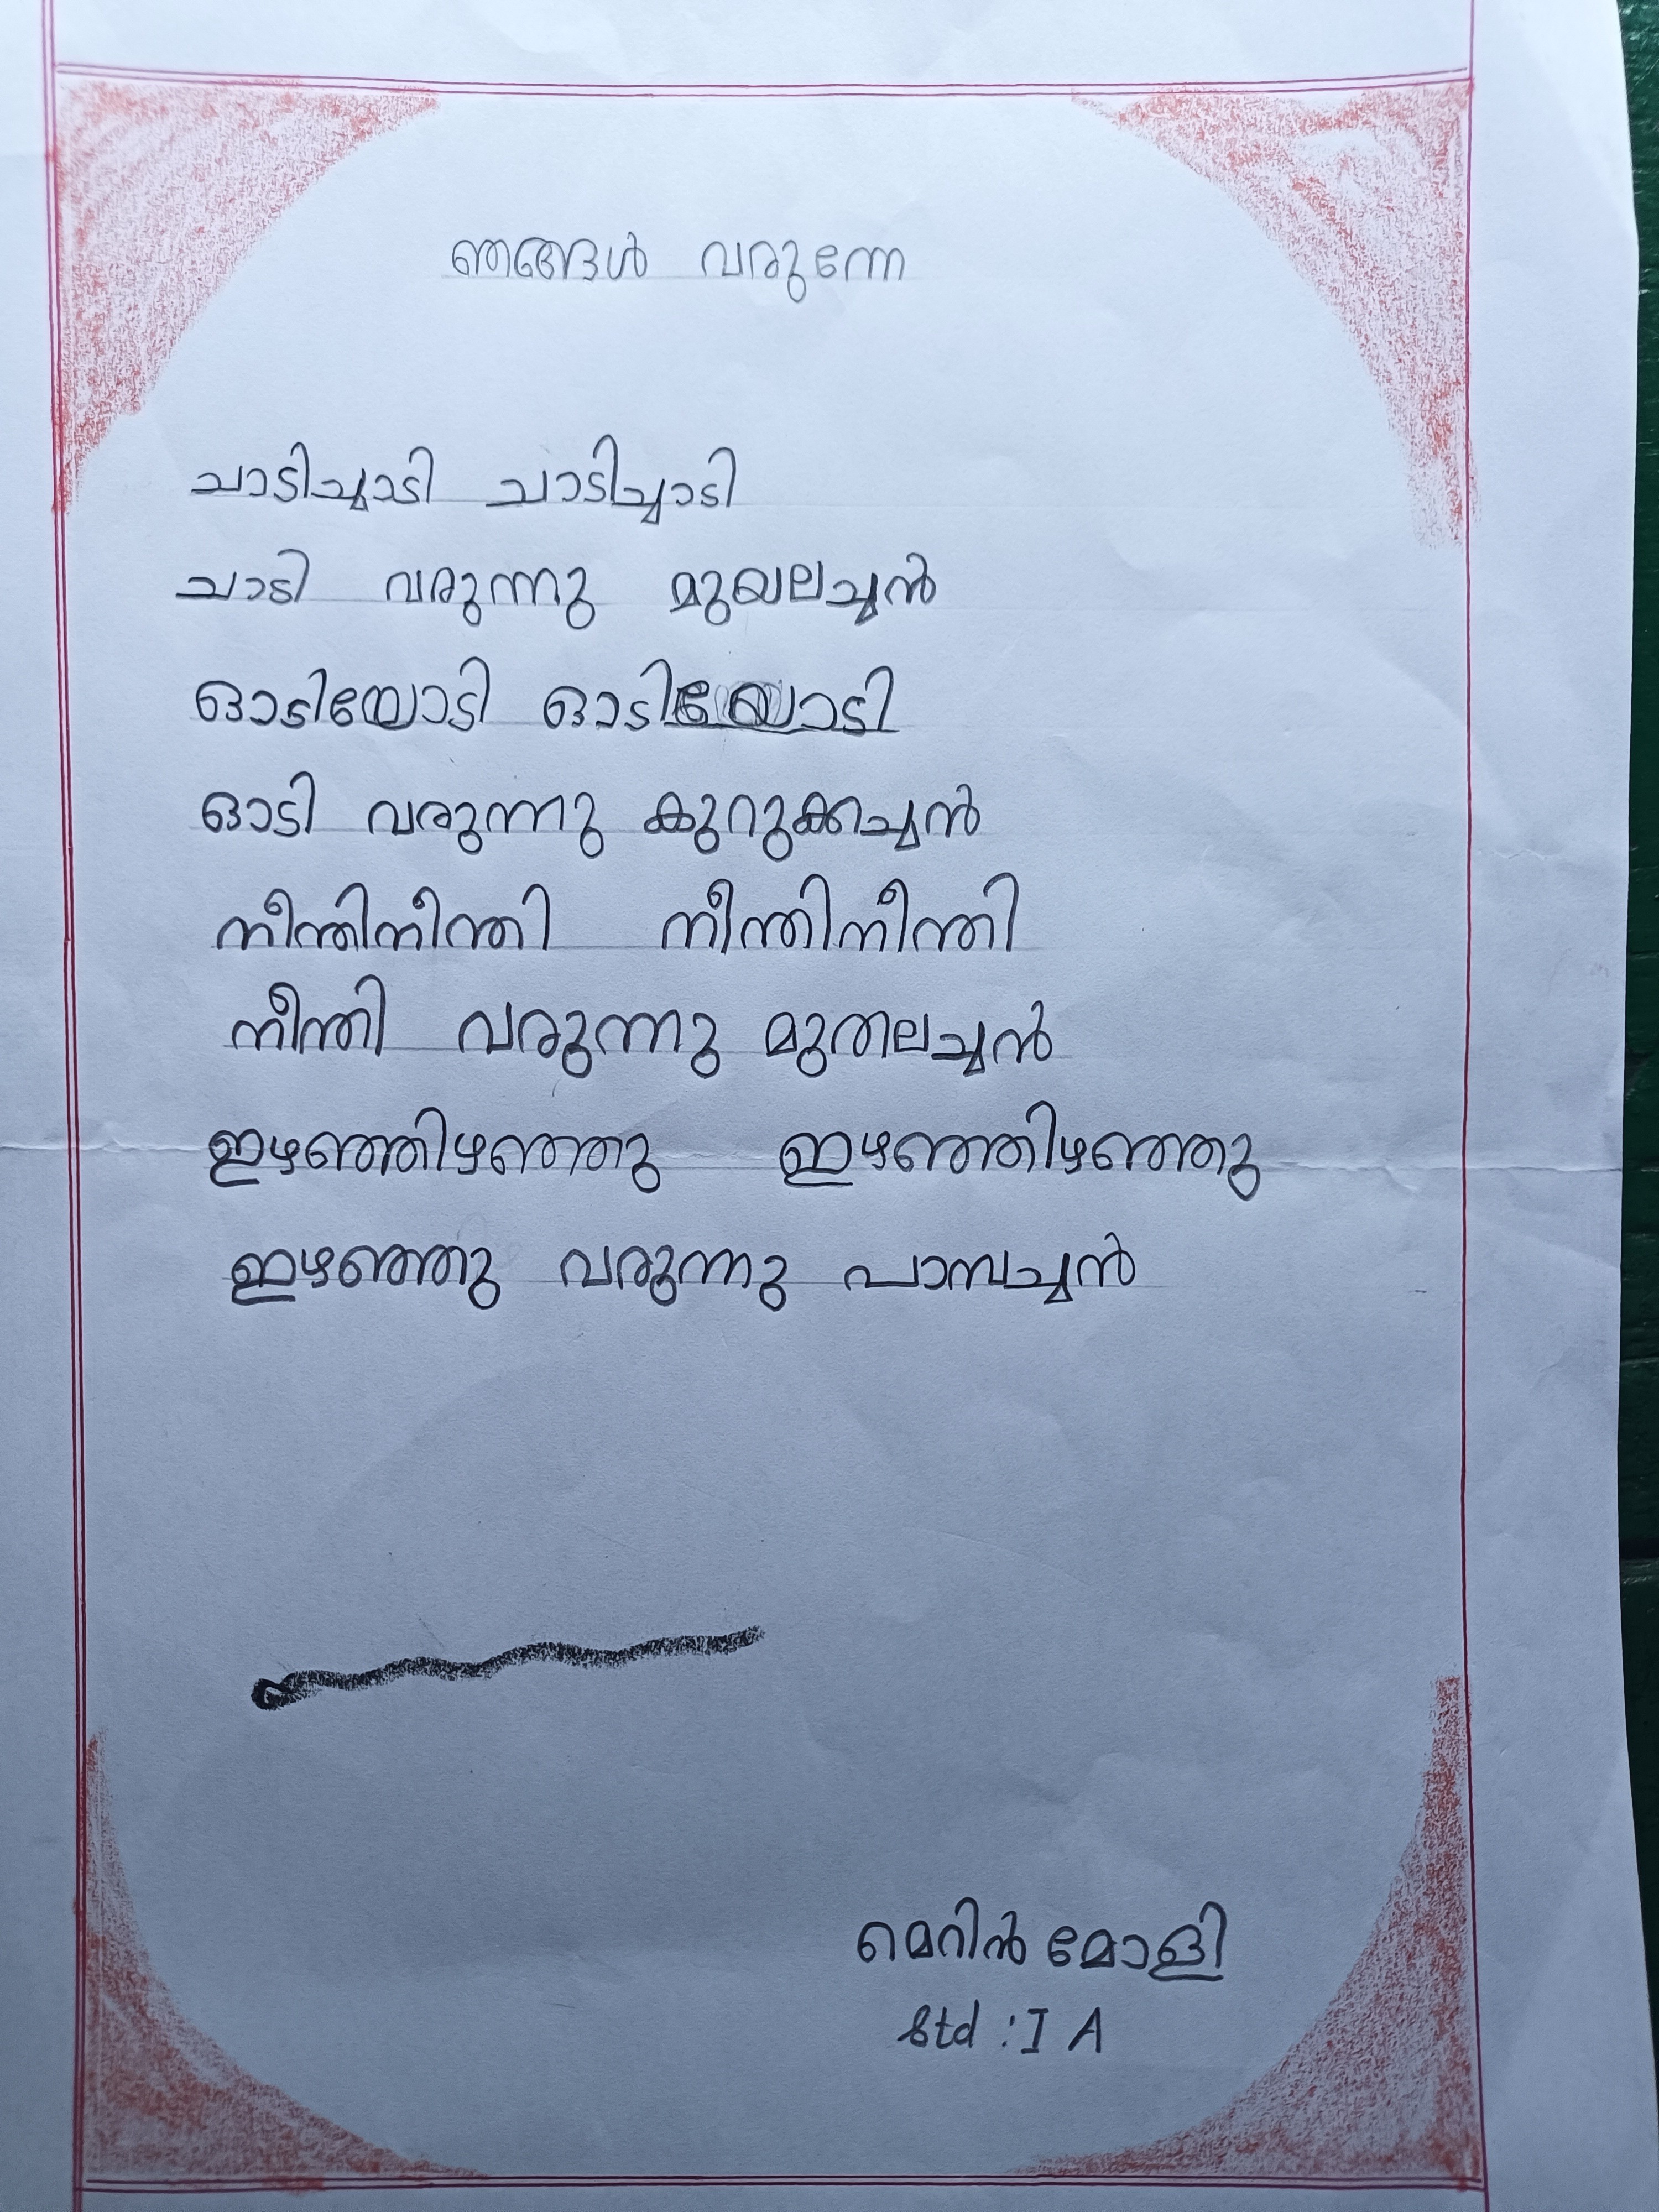 ഞങ്ങൾ വരുന്നേ
ചാടിച്ചാടി ചാടിച്ചാടി
ചാടി വരുന്നു മുയലച്ചൻ
ഓടിയോടി ഓടിയോടി
ഓടി വരുന്നു കുറുക്കച്ചൻ
നീന്തിനീന്തി നീന്തിനീന്തി
നീന്തി വരുന്നു മുതലച്ചൻ
ഇഴഞ്ഞിഴഞ്ഞു ഇഴഞ്ഞിഴഞ്ഞു
ഇഴഞ്ഞു വരുന്നു പാമ്പച്ചൻ
മെറിൻ മോളി
Std : I A